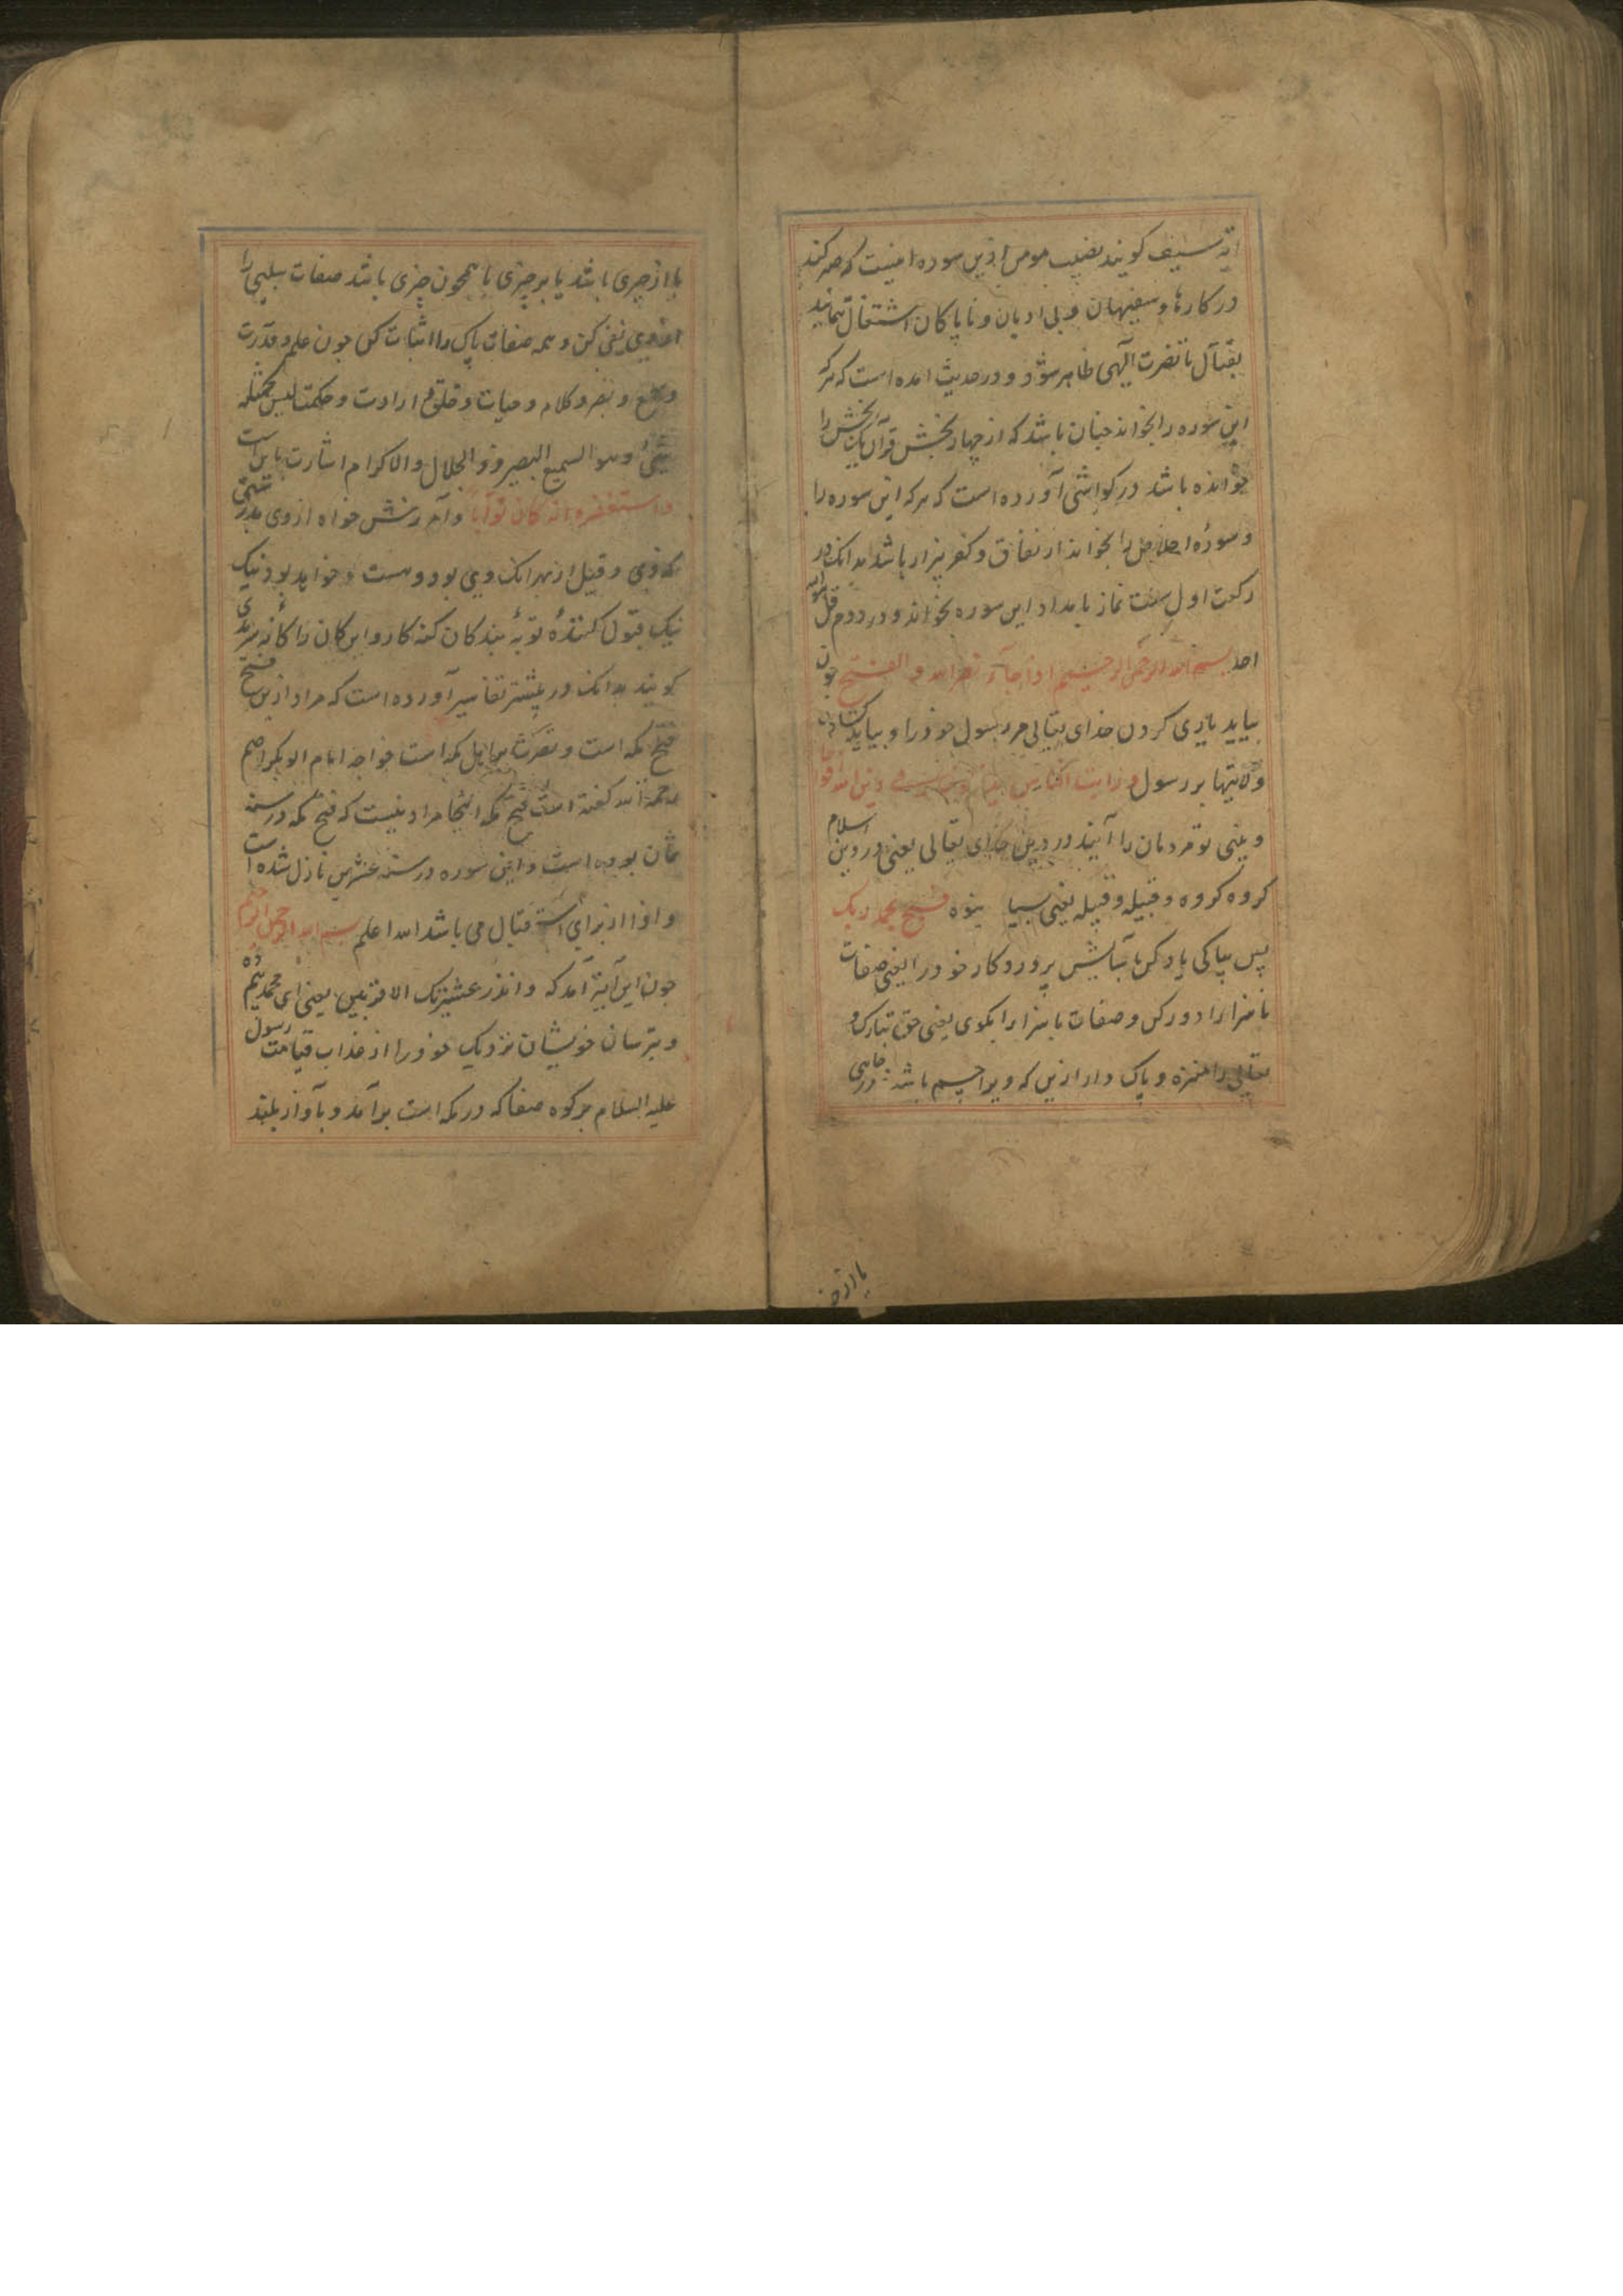 آیة سیف کویند نصیب مومن ازین سوره اینست که صبر کند
در کارها و سفیهان و بی ادبان و ناپاکان اشتغال ننماید
بقتال تا نصرت آلهی ظاهر شود و در حدیث آمده است که هرکه
این سوره را بخواند چنان باشد که از چهار بخش قرآن یک بخش را
خوانده باشد در کواشی آورده است که هرکه این سوره را
و سورهٔ اخلاص را بخواند از نفاق و کفر بیزار باشد بدانک در
رکعت اول سنت نماز بامداد این سوره بخواند و در دوم قل هو الله
احد بسم الله الرحمن الرحیم اذا جآء نصر الله و الفتح چون
بیاید یاری کردن خدای تعالی مر رسول خود را و بیاید کشادن
ولایتها بر رسول و رایت الناس یدخلون فی دین الله افواجا
و بینی تو مردمان را آیند در دین خدای تعالی یعنی در دین اسلام
کروه کروه و قبیله و قبیله یعنی بسیا بنوه فسبح بحمد ربک
پس بپاکی یاد کن با ستایش پروردکار خود را یعنی صفات
ناسزا را دور کن و صفات با سزا را بکوی یعنی حق تبارک و
تعالی را منزه و پاک دار ازین که ویرا جسم باشد در جایی
یا از چیزی باشد یا بر چیزی یا همچون چیزی باشد صفات سلبی را
از وی نفی کن و همه صفات پاک را اثبات کن چون علم و قدرت
و سمع و بصر و کلام و حیات و خلق و ارادت و حکمت لیس کمثله
شیٔ و هو السمیع البصیر و ذو الجلال و الاکرام اشارت باین است
و استغفره انه کان توابا و آمرزش خواه از وی بدرستی
که وی و قیل از بهر انک وی بود و هست و خواهد بود نیک
نیک قبول کنندهٔ توبهٔ بندکان کنه کار و این کان را کان سرمدی
کویند بدانک در بیشتر تفاسیر آورده است که مراد ازین فتح
فتح مکه است و نصرت بر اهل مکه است خواجه امام ابوبکر اصم
رحمة الله کفته است فتح مکه اینجا مراد نیست که فتح مکه در سنه
ثمان بوده است و این سوره در سنه عشر نازل شده است
و اذا از برای استقبال می باشد الله اعلم بسم الله الرحمن الرحیم
چون این آیة آمد که و انذر عشیرتک الاقربین یعنی ای محمد بیم ده
و بترسان خویشان نزدیک خود را از عذاب قیامت رسول
علیه السلام بر کوه صفا که در مکه است برآمد و بآواز بلند
یا از چیز